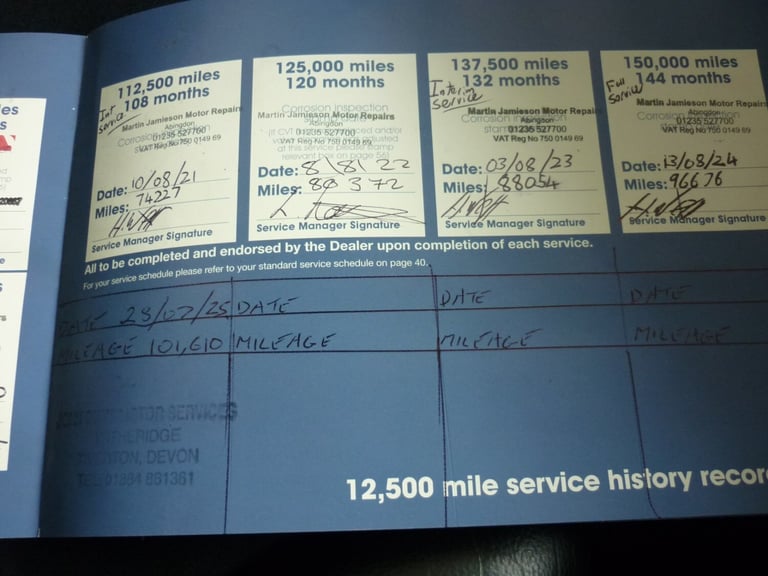 112,500 miles
108 months
Int service
Martin Jamieson Motor Repairs
Abingdon
01235 527700
VAT Reg No 750 0149 69
Date: 10/08/21
Miles: 74227
Service Manager Signature
125,000 miles
120 months
Corrosion Inspection
Martin Jamieson Motor Repairs
Abingdon
01235 527700
VAT Reg No 750 0149 69
at this service please stamp
relevant box on page 56)
Date: 8/8/22
Miles: 80372
Service Manager Signature
137,500 miles
132 months
Interim service
Martin Jamieson Motor Repairs
Abingdon
01235 527700
VAT Reg No 750 0149 69
Date: 03/08/23
Miles: 88054
Service Manager Signature
150,000 miles
144 months
Full service
Martin Jamieson Motor Repairs
Abingdon
01235 527700
VAT Reg No 750 0149 69
Date: 13/08/24
Miles: 96676
Service Manager Signature
All to be completed and endorsed by the Dealer upon completion of each service.
For your service schedule please refer to your standard service schedule on page 40.
DATE 23/07/25 DATE DATE DATE
MILEAGE 101,610 MILEAGE MILEAGE MILEAGE
SERVICES
DEVON
TEL 01884 861361
12,500 mile service history recor